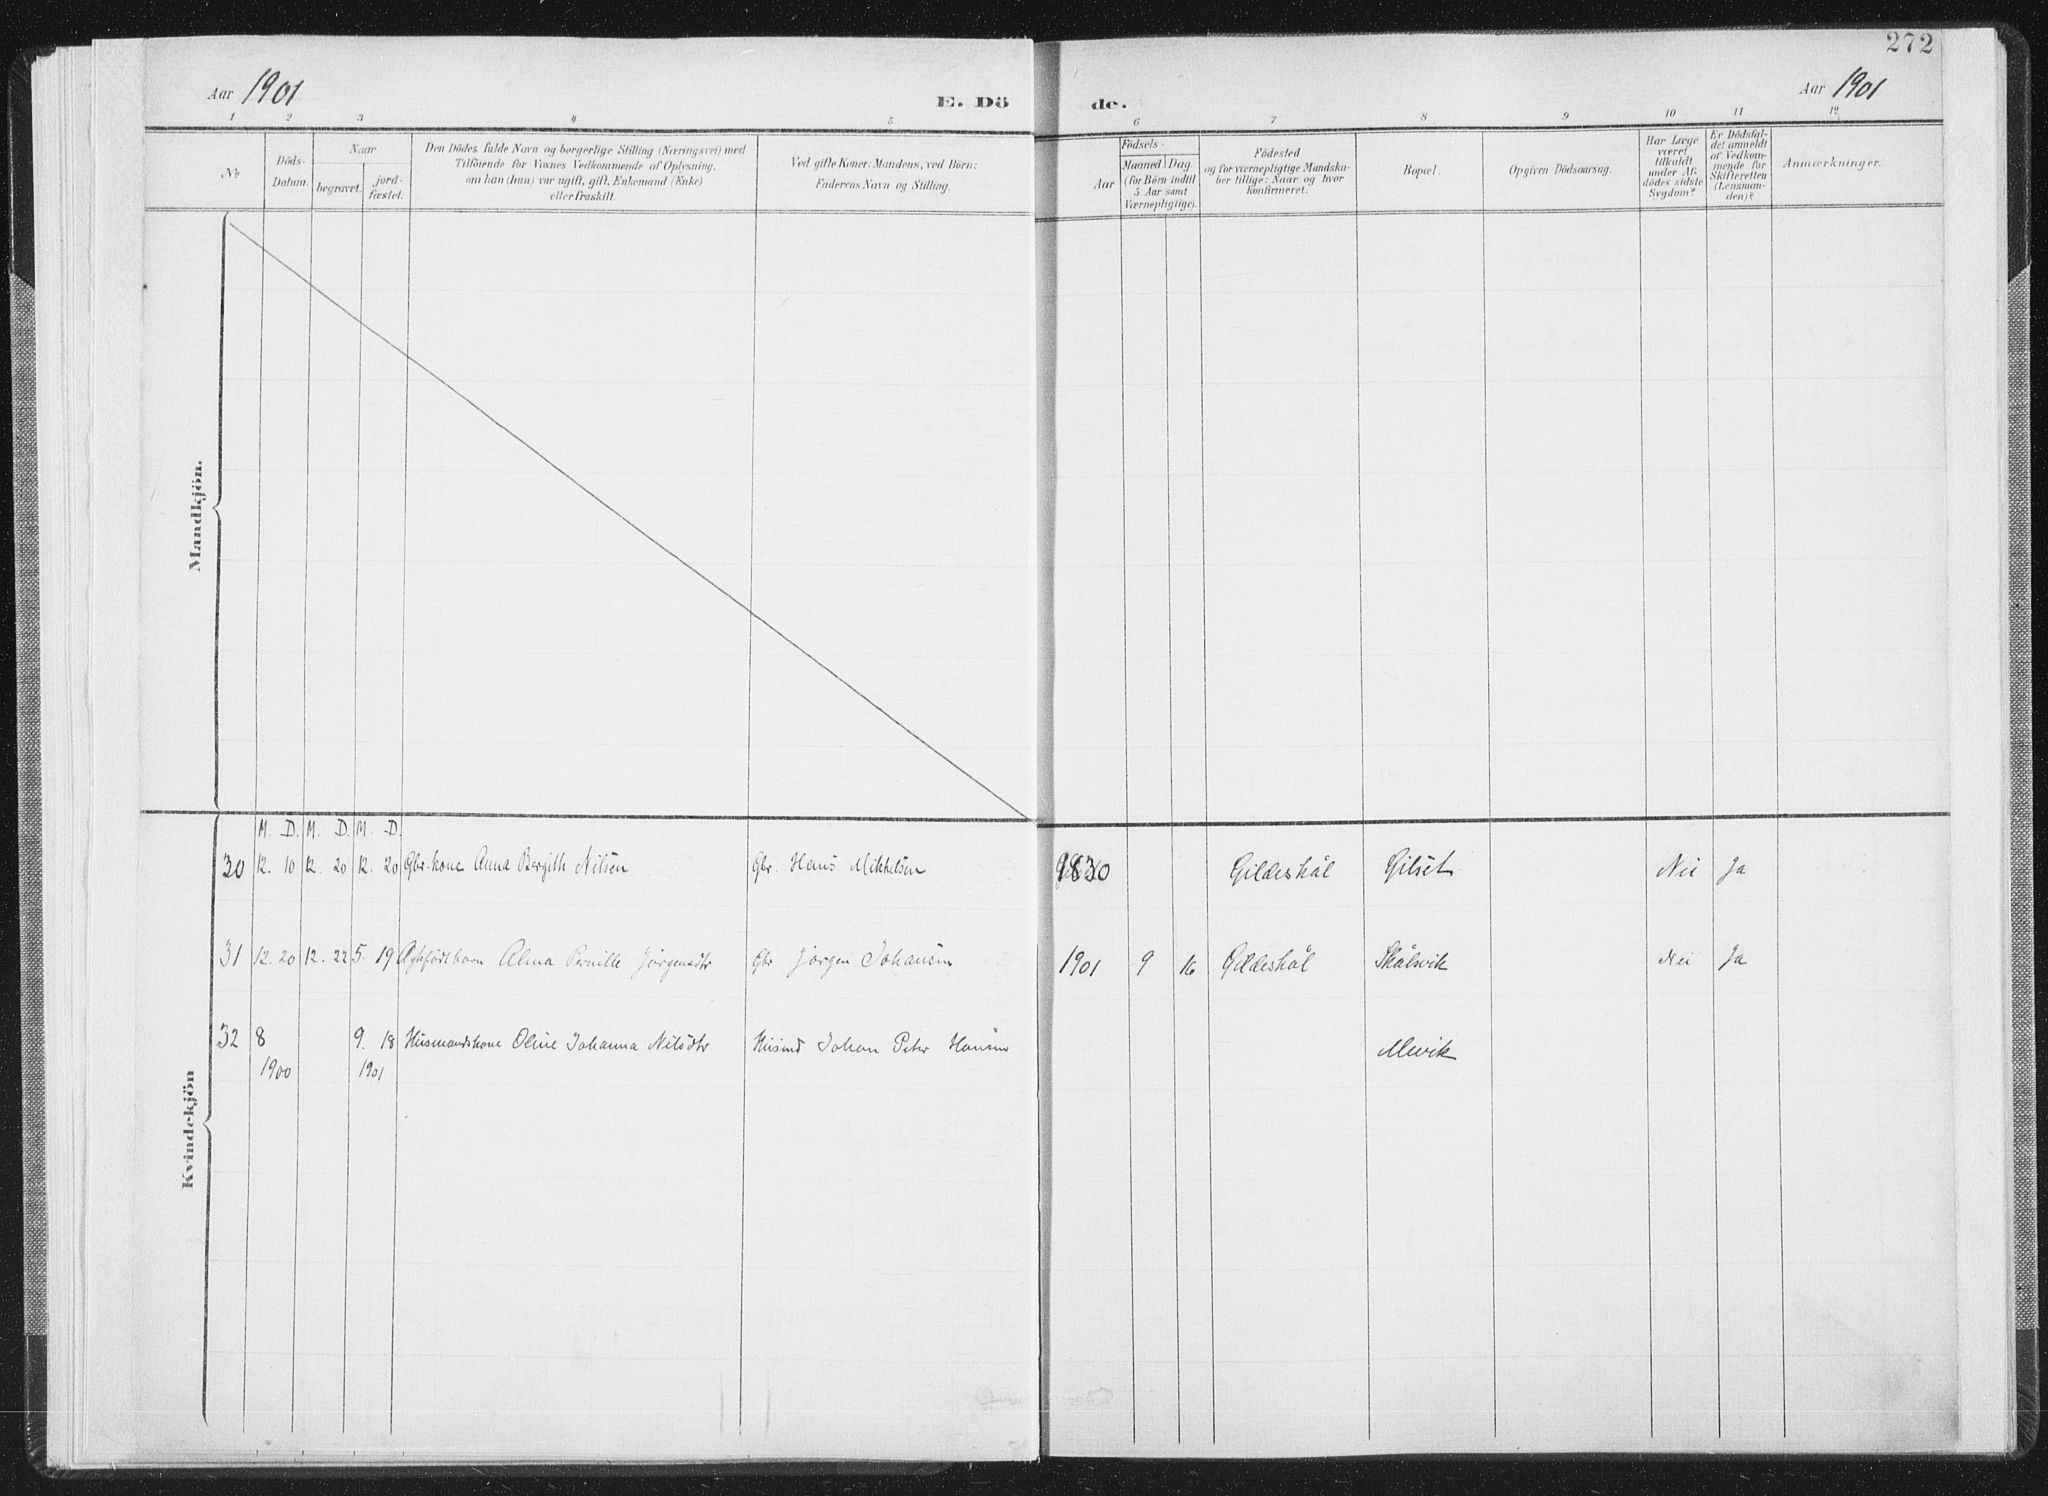 272
Aar 1901
E. Dö
de.
Aar 1901
1 2 3 4 5 6 7 8 9 10 11 12
No
Döds-
Datum.
Naar
begravet.
jord-
fæstet.
Den Dödes fulde Navn og borgerlige Stilling (Næringsvei) med
Tilföiende for Voxnes Vedkommende af Oplysning,
om han (hun) var ugift, gift, Enkemand (Enke)
eller fraskilt.
Ved gifte Koner: Mandens, ved Börn:
Faderens Navn og Stilling.
Födsels-
Aar
Maaned.
Dag.
(for Börn indtil
5 Aar samt
Værnepligtige).
Födested
og for værnepligtige Mandska-
ber tillige: Naar og hvor
konfirmeret.
Bopæl.
Opgiven Dödsaarsag.
Har Læge
været
tilkaldt
under Af-
dödes sidste
Sygdom?
Er Dödsfal-
det anmeldt
af Vedkom-
mende for
Skifteretten
(Lensman-
den)?
Anmærkninger.
Mandkjön.
Kvindekjön
M. D. M. D. M. D.
30 12. 10 12. 20 12. 20 Gbr. kone Anna Bergith Nilsen Gbr. Hans Mikkelsen 1830 Gildeskål Gilset Nei Ja
31 12. 20 12. 22 5. 19 Alma Pernille Jörgensdtr Gbr Jörgen Johansen 1901 9 16 Gildeskål Skålsvik Nei Ja
32 8 9. 18 Husmandskone Oline Johanna Nilsdtr Husmd Johan Peter Hansen Mevik
1900 1901